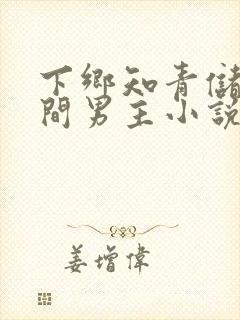 下鄉知青儲
間男主小說
姜增偉